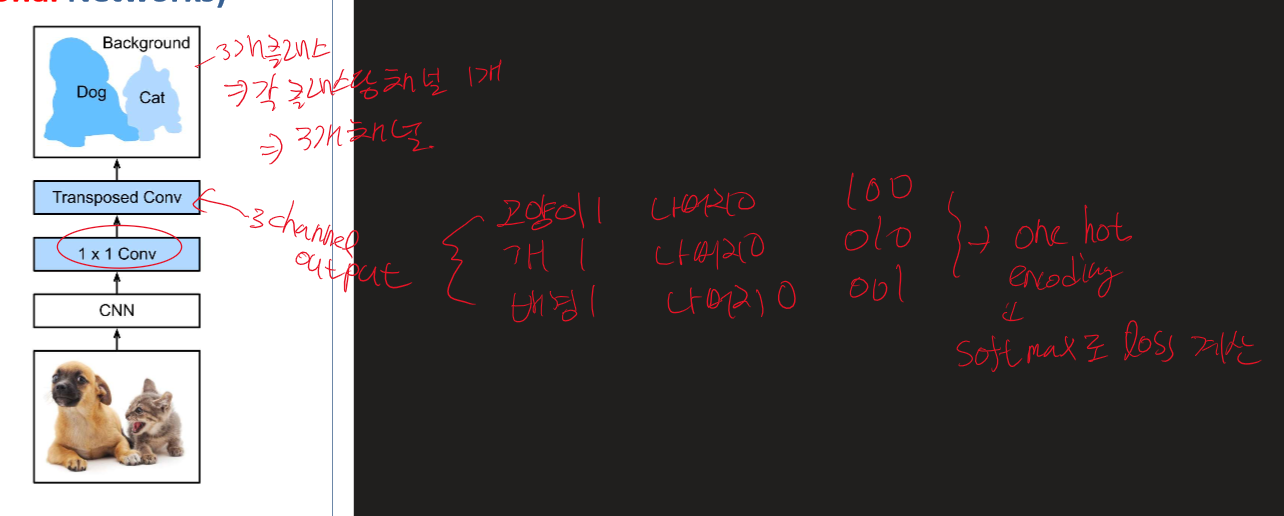 onal Networks)
Background
Dog
Cat
Transposed Conv
1 x 1 Conv
CNN
3개 클래스
⇒ 각 클래스당 채널 1개
⇒ 3개 채널
3 channel
output
고양이 1 나머지 0 1 0 0
개 1 나머지 0 0 1 0
배경 1 나머지 0 0 0 1
→ one hot
encoding
↓
softmax로 loss 계산